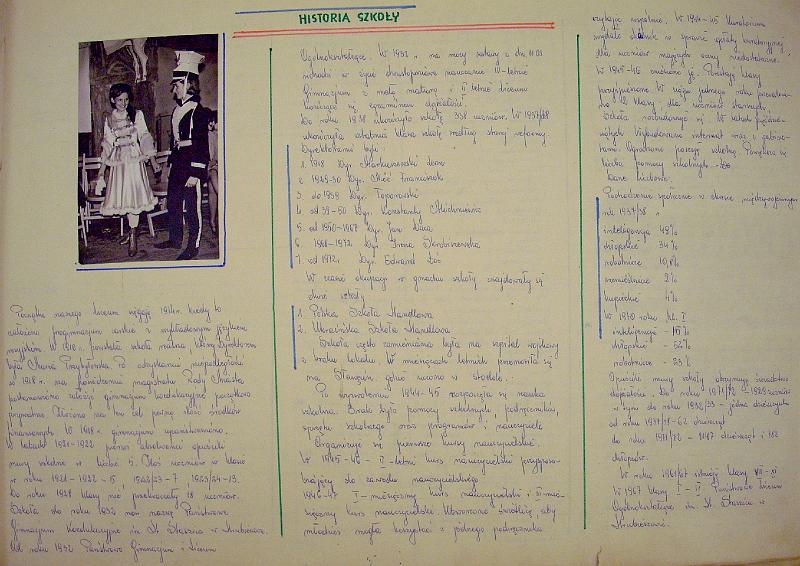 HISTORIA SZKOŁY
Początki naszego liceum sięgają 1914 r. kiedy to
założono progimnazjum z wykładowym językiem
rosyjskim. W 1916 r. powstała szkoła realna, której dyrektorem
była Maria Przybylska. Po odzyskaniu niepodległości
w 1918 r. na posiedzeniu magistratu Rady Miasta
postanowiono założyć gimnazjum koedukacyjne początkowo
prywatne. na ten cel pewną ilość środków
finansowych. W 1918 r. gimnazjum upaństwowiono.
W latach 1921-1922 pierwsi absolwenci opuścili
mury szkolne w liczbie 5. Ilość uczniów w klasie
w roku 1921-1922 - 15 1922/23-7 1923/24-13.
Do roku 1928 klasy nie przekraczały 18 uczniów.
Szkoła do roku 1932 nosi nazwę Państwowe
Gimnazjum Koedukacyjne im. St. Staszica w Hrubieszowie.
Od roku 1932 Państwowe Gimnazjum i Liceum
Ogólnokształcące. W 1932 r. na mocy ustawy z dn. 11.03.
wchodzi w życie dwustopniowe nauczanie IV-letnie
Gimnazjum z małą maturą i II letnie liceum
kończące się egzaminem dojrzałości.
Do roku 1938 ukończyło szkołę 338 uczniów. W 1937/38
ukończyła ostatnia klasa szkołę według starej reformy.
Dyrektorami byli
1. 1918 Dyr.
2. 1925-30 Dyr. Franciszek
3. do 1939 Dyr. Toporowski
4. od 39-50 Dyr. Konstanty
5. od 1950-1967 Dyr. Jan Daca
6. 1968-1972 Dyr. Irena Skrobiszewska
7. od 1972 r. Dyr. Edward Łoś
W czasie okupacji w gmachu szkoły znajdowały się
dwie szkoły
1. Polska Szkoła Handlowa
2. Ukraińska Szkoła Handlowa
Szkoła często zamieniana była na szpital wojskowy
z braku lokalu. W miesiącach letnich przenosiła się
na gdzie uczono w stodole.
Po wyzwoleniu 1944-45 rozpoczęła się nauka
szkolna. Brak było pomocy szkolnych, podręczników,
sprzętu szkolnego oraz programów i nauczycieli
Organizuje się pierwsze kursy nauczycielskie.
W 1945-46 - II-letni kurs nauczycielski
do zawodu nauczycielskiego
1946-47 I-miesięczny kurs nauczycielski i
kurs nauczycielski. Utworzono świetlicę aby
młodzież mogła korzystać z jednego podręcznika
wspólnie. W 1944-45 Kuratorium
wydało w sprawie opłaty
dla uczniów mających oceny niedostateczne.
W 1945-46 zniesiono je. Powstają klasy
przyspieszone. W ciągu jednego roku
12 klasy, dla uczniów starszych.
Szkoła się. W latach
internat wraz z
Ogrodzono posesję szkolną. Powiększa się
liczba pomocy szkolnych
Dane liczbowe.
Pochodzenie społeczne w okresie międzywojennym
rok 1937/38 r.
inteligencja 49%
chłopskie 34%
robotnicze 10,8%
rzemieślnicze 2%
kupieckie 4%
W 1970 roku kl. I
inteligencja
chłopskie - 52%
robotnicze - 23%
Opuściło mury szkoły otrzymując świadectwo
dojrzałości. Do roku 1971/72 - uczniów
w tym do roku 1932/33 - dziewcząt
od roku 1937/38 - 62 dziewcząt
do roku 1971/72 - 1147 dziewcząt i 182
chłopców.
W roku 1961/67 istnieją klasy VIII-XI
W 1967 klasy I-IV Państwowe Liceum
Ogólnokształcące im. St. Staszica w
Hrubieszowie.